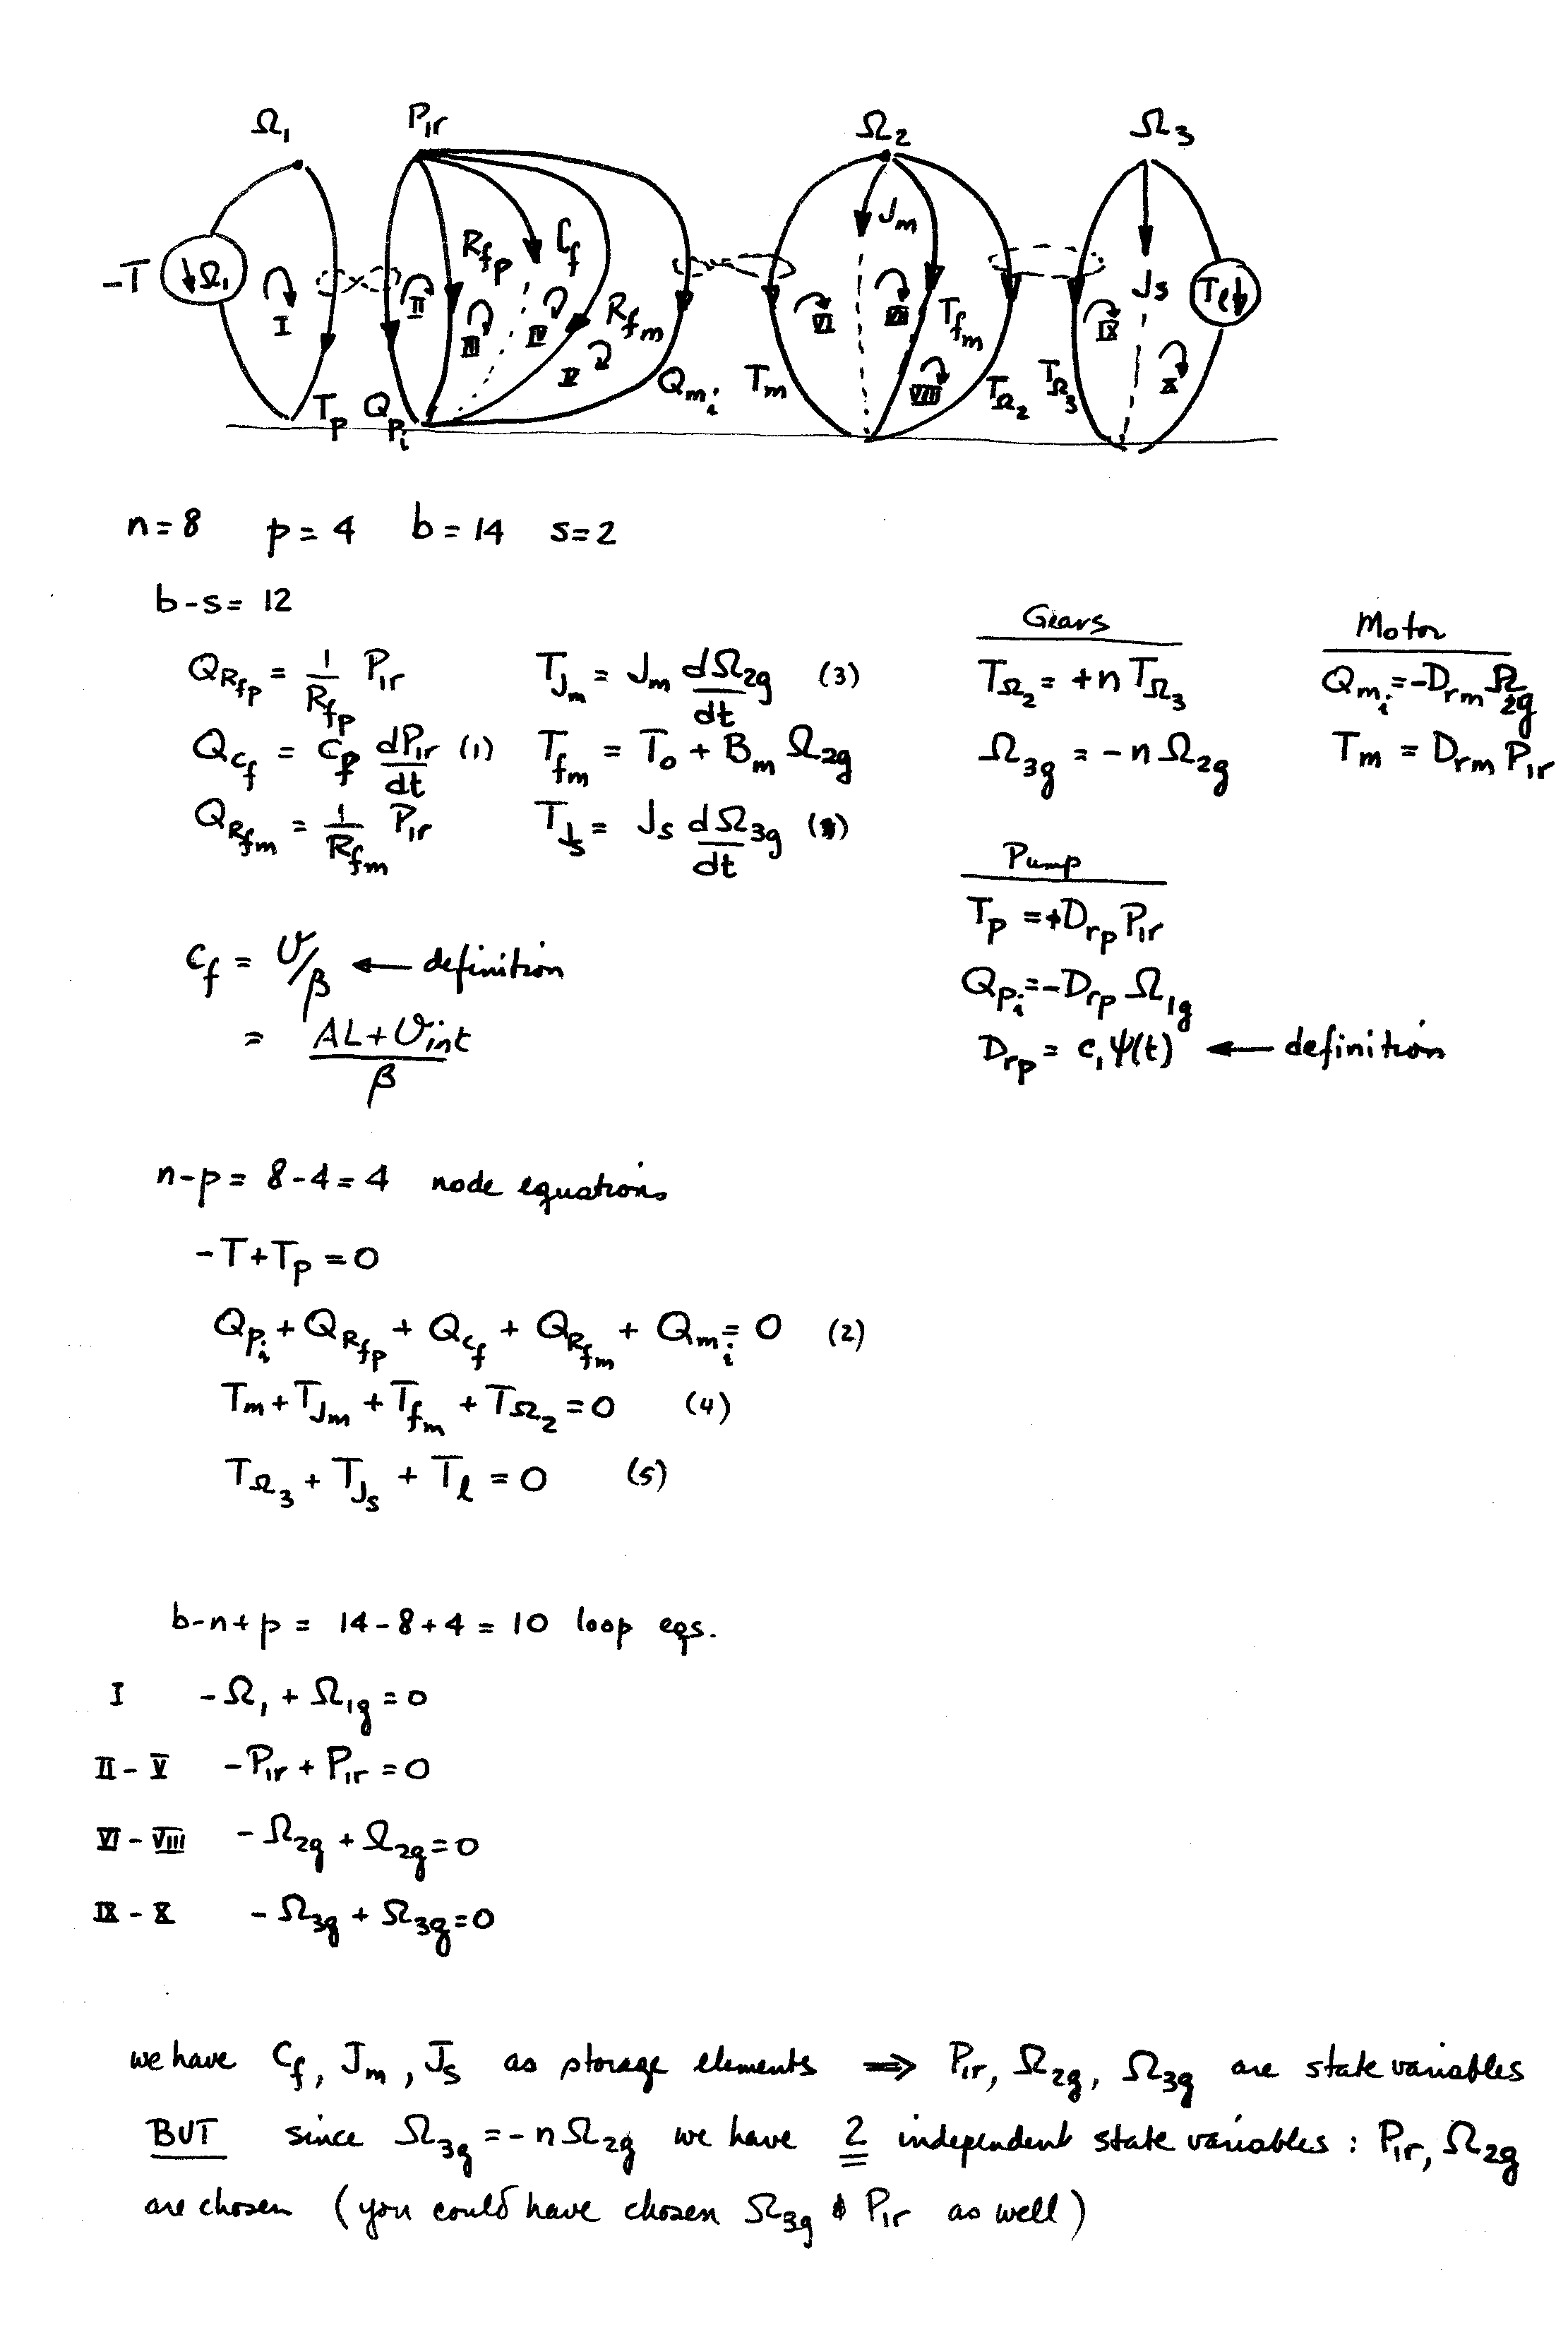 Ω₁ P₁ᵣ Ω₂ Ω₃
-T Ω₁ I II III IV V VI VII VIII IX X
R_fp C_f R_fm J_m T_fm J_s T_ℓ
T_p Q_pi Q_mi T_m T_Ω₂ T_Ω₃
n=8 p=4 b=14 s=2
b-s= 12
Q_Rfp = 1/R_fp P₁ᵣ T_Jm = J_m dΩ₂g/dt (3)
Q_cf = C_f dP₁ᵣ/dt (1) T_fm = T₀ + B_m Ω₂g
Q_Rfm = 1/R_fm P₁ᵣ T_Js = J_s dΩ₃g/dt
Gears
T_Ω₂ = +n T_Ω₃
Ω₃g = -n Ω₂g
Motor
Q_mi = -D_rm Ω₂g
T_m = D_rm P₁ᵣ
Pump
T_p = +D_rp P₁ᵣ
Q_pi = -D_rp Ω₁g
D_rp = c₁ψ(t) ← definition
C_f = V/β ← definition
= (AL+V_int)/β
n-p = 8-4 = 4 node equations
-T+T_p = 0
Q_pi + Q_Rfp + Q_cf + Q_Rfm + Q_mi = 0 (2)
T_m + T_Jm + T_fm + T_Ω₂ = 0 (4)
T_Ω₃ + T_Js + T_ℓ = 0 (5)
b-n+p = 14-8+4 = 10 loop eqs.
I -Ω₁ + Ω₁g = 0
II - V -P₁ᵣ + P₁ᵣ = 0
VI - VIII -Ω₂g + Ω₂g = 0
IX - X -Ω₃g + Ω₃g = 0
we have C_f, J_m, J_s as storage elements ⇒ P₁ᵣ, Ω₂g, Ω₃g are state variables
BUT since Ω₃g = -nΩ₂g we have 2 independent state variables : P₁ᵣ, Ω₂g
are chosen (you could have chosen Ω₃g & P₁ᵣ as well)